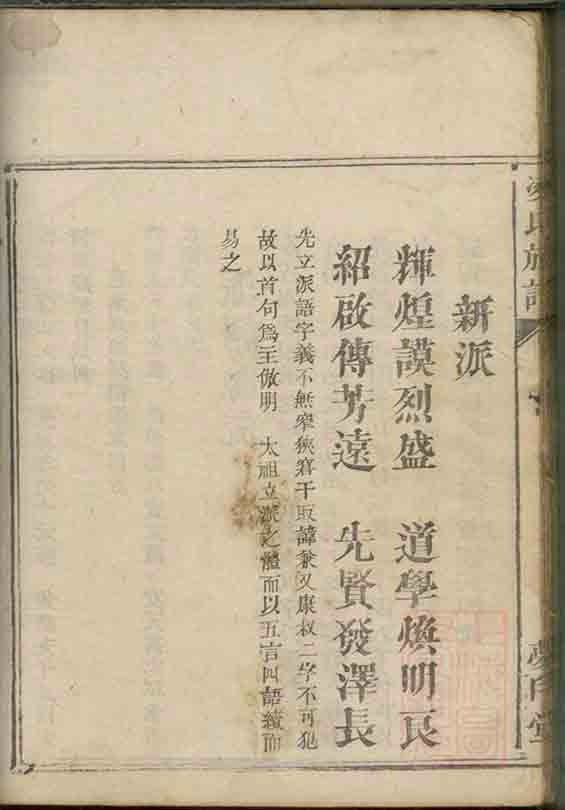 新派
輝煌謨烈盛 道學煥明良
紹啟傳芳遠 先賢發澤長
先立派語字義不無窄狹窘于取諱兼又康叔二字不可犯
故以首句爲主倣明 太祖立派之體而以五言四語續而
易之
氏族譜
堂